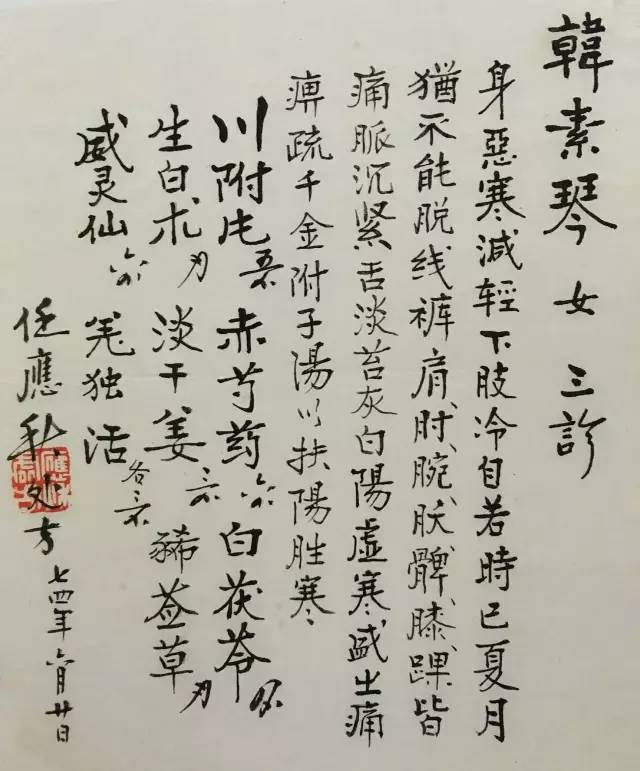 韓素琴 女 三診
身惡寒減輕下肢冷自若時已夏月
猶不能脱线裤肩、肘、腕、肰、髀、膝、踝皆
痛脈沉紧舌淡苔灰白陽虚寒盛之痛
痹疏千金附子湯以扶陽胜寒
川附片 赤芍药 白茯苓
生白术 淡干姜 豨薟草
威灵仙 羌独活 各
任應秋处方
七四年六月廿日